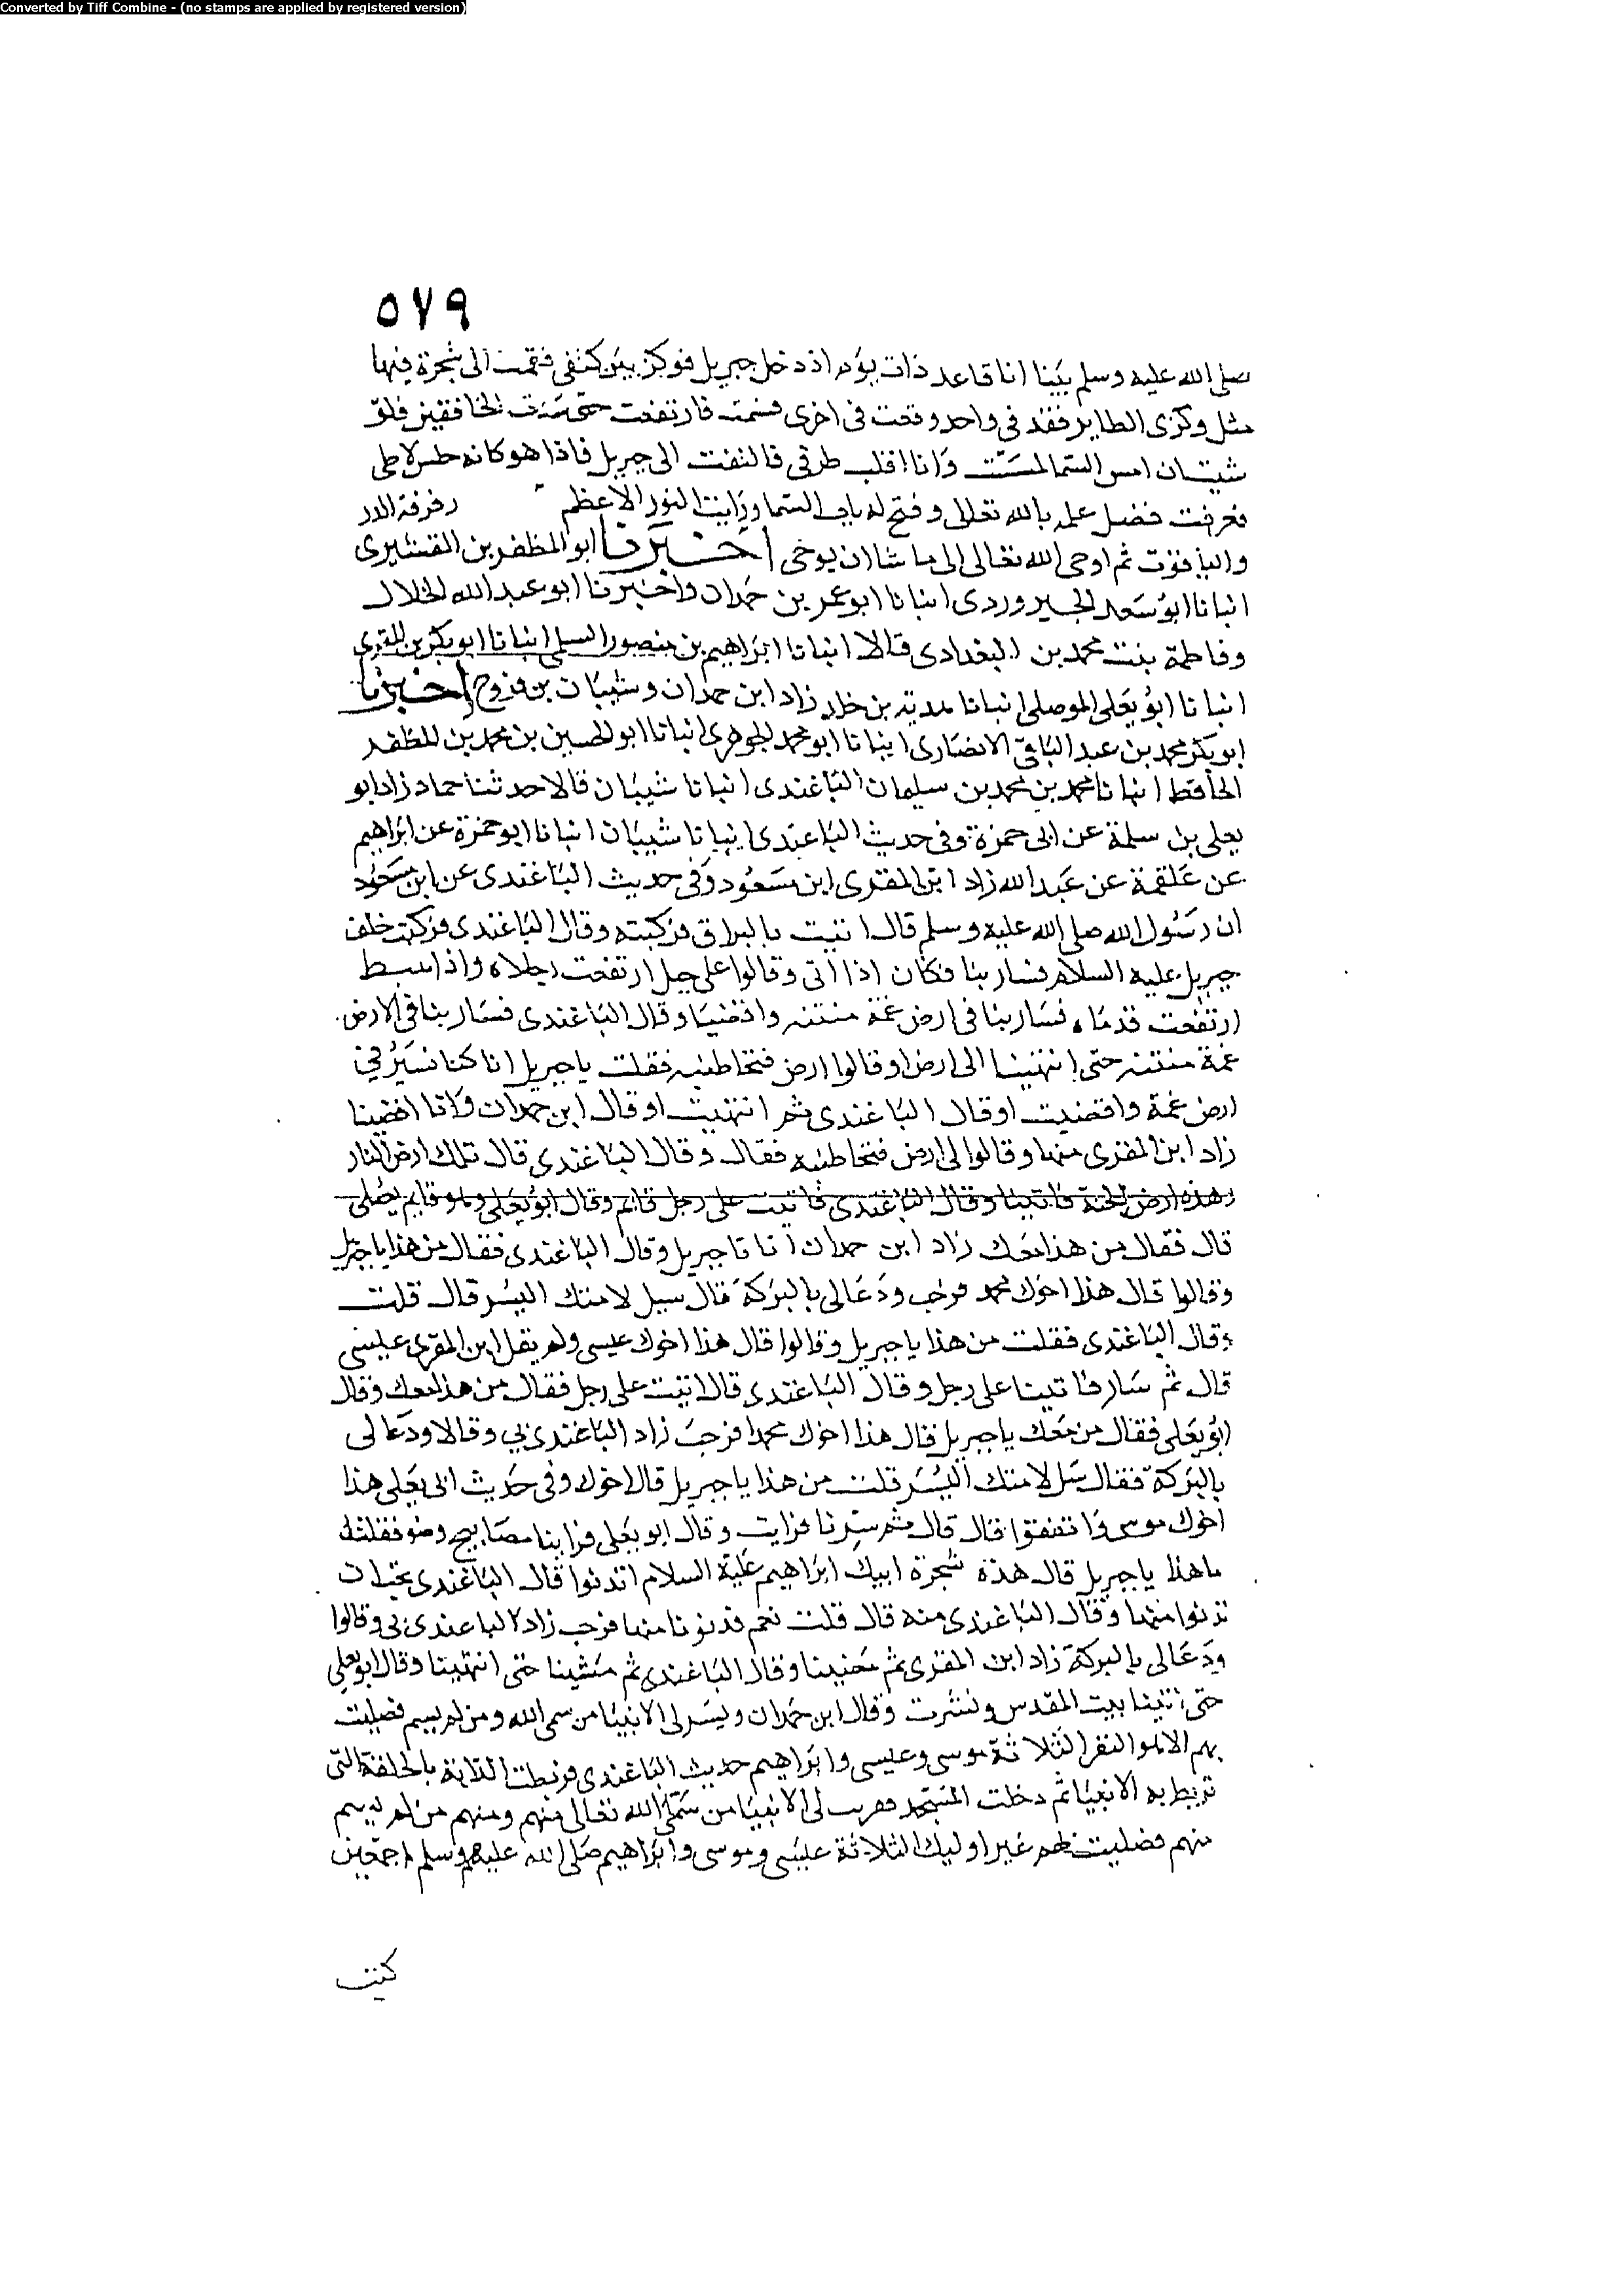 Converted by Tiff Combine - (no stamps are applied by registered version)
٥٧٩
صلى الله عليه وسلم بينا انا قاعد ذات يوم اذ دخل جبريل فوكز بين كتفى فقمت الى شجرة فيها
مثل وكرى الطاير فقعد فى واحد وقعت فى اخرى فسمت فارتفعت حتى سدت الخافقين فلو
شيت ان امس السما لمسست وانا اقلب طرفى فالتفت الى جبريل فاذا هو كانه حلس لاطى
فعرفت فضل علمه بالله تعالى وفتح له باب السما ورايت النور الاعظم رفرفة الدر
والياقوت ثم اوحى الله تعالى الى ما شا ان يوحى اخبرنا ابو المظفر بن القشيرى
انبانا ابو سعد الجيروردى انبانا ابو عمر بن حمدان واخبرنا ابو عبد الله الخلال
وفاطمة بنت محمد بن البغدادى قالا انبانا ابراهيم بن منصور السلمى انبانا ابو بكر بن المقرى
انبانا ابو يعلى الموصلى انبانا هدبة بن خالد زاد ابن حمدان وشيبان بن فروخ اخبرنا
ابو بكر محمد بن عبد الباقى الانصارى انبانا ابو محمد الجوهرى انبانا ابو الحسين بن محمد بن المظفر
الحافظ انبانا محمد بن محمد بن سليمان الباغندى انبانا شيبان قالا حدثنا حماد زاد ابو
يعلى بن سلمة عن ابى حمزة وفى حديث الباغندى انبانا شيبان انبانا ابو حمزة عن ابراهيم
عن علقمة عن عبد الله زاد ابن المقرى ابن مسعود وفى حديث الباغندى عن ابن مسعود
ان رسول الله صلى الله عليه وسلم قال اتيت بالبراق فركبته وقال الباغندى فركبت خلف
جبريل عليه السلام فسار بنا فكان اذا اتى وقالوا على جبل ارتفعت رجلاه واذا هبط
ارتفعت قدماه فسار بنا فى ارض غمة منتنه وافضينا وقال الباغندى فسار بنا فى الارض
غمة منتنه حتى انتهينا الى ارض اوقالوا ارض فقلت يا جبريل انا كنا نسير فى
ارض غمة وافضيت اوقال الباغندى ثم انتهيت اوقال ابن حمدان وانا افضينا
زاد ابن المقرى منها وقالوا الى ارض فقال وقال الباغندى قال تلك ارض النار
وهذه ارض الجنة فاتينا وقال الباغندى فاتيت على رجل قايم وقال ابو يعلى وهو قايم يصلى
قال فقال من هذا معك زاد ابن حمدان انا يا جبريل وقال الباغندى فقال من هذا يا جبريل
وقالوا قال هذا اخوك محمد فرحب ودعا لى بالبركة فقال سل لامتك اليسر قال قلت
وقال الباغندى فقلت من هذا يا جبريل وقالوا قال هذا اخوك عيسى ولم يقل ابن المقرى عيسى
قال ثم سار فاتينا على رجل وقال الباغندى قال اتيت على رجل فقال من هذا معك وقال
ابو يعلى فقال من معك يا جبريل قال هذا اخوك محمدا فرحب زاد الباغندى بى وقالا ودعا لى
بالبركة فقال سل لامتك اليسر قلت من هذا يا جبريل قال اخوك وفى حديث ابى يعلى هذا
اخوك موسى واتفقوا قال قال ثم سرنا فرايت وقال ابو يعلى فراينا مصابيح وضو فقلت
ما هذا يا جبريل قال هذه شجرة ابيك ابراهيم عليه السلام اتدنوا قال الباغندى ان
تدنوا منها وقال الباغندى منه قال قلت نعم فدنونا منها فرحب زاد الباغندى بى وقالوا
ودعا لى بالبركة زاد ابن المقرى ثم مضينا وقال الباغندى ثم مشينا حتى انتهينا وقال ابو يعلى
حتى اتينا بيت المقدس ونشرت وقال ابن حمدان ونشر لى الانبيا من سمى الله ومن لم يسم فصليت
بهم الا هولا النفر الثلاثة موسى وعيسى وابراهيم حديث الباغندى فربطت الدابة بالحلقة التى
تربط به الانبيا ثم دخلت المسجد لى الانبيا من سمى الله تعالى منهم ومنهم من لم يسم
منهم فصليت بهم غير اوليك الثلاثة عيسى وموسى وابراهيم صلى الله عليهم وسلم اجمعين